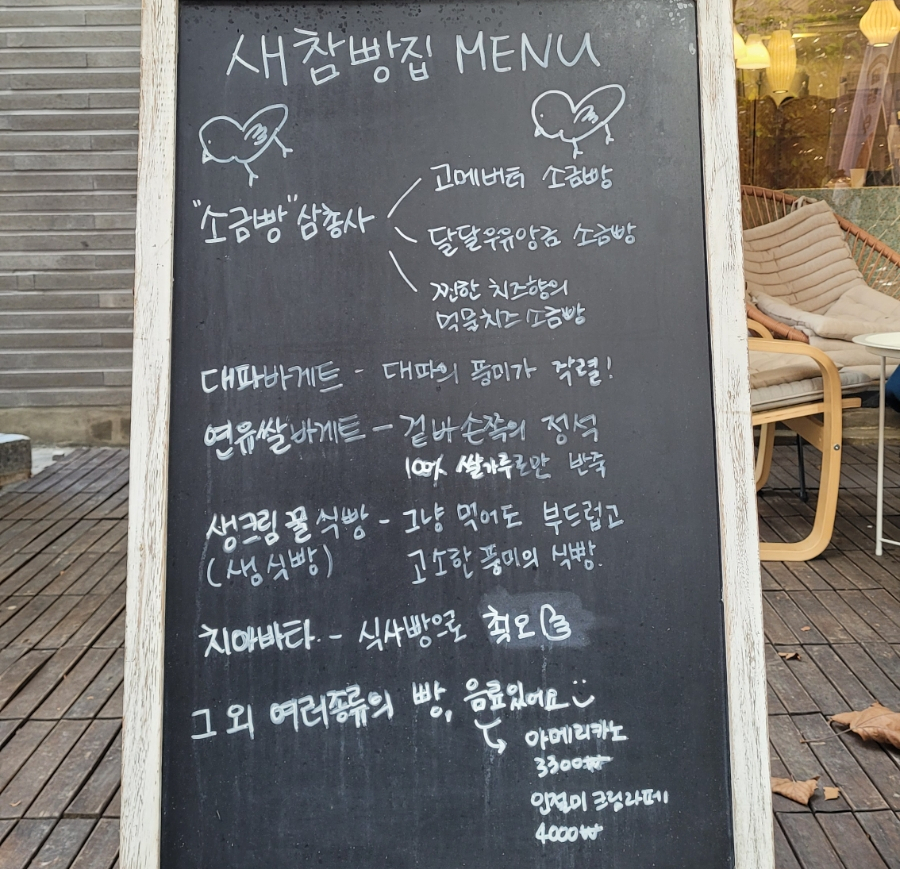 새참빵집 MENU
"소금빵" 삼총사
고메버터 소금빵
달달우유앙금 소금빵
찐한 치즈향의
먹물치즈 소금빵
대파바게트 - 대파의 풍미가 작렬!
연유쌀바게트 - 겉바손쫀의 정석
100% 쌀가루로만 반죽
생크림 꿀 식빵 - 그냥 먹어도 부드럽고
(생식빵) 고소한 풍미의 식빵.
치아바타 - 식사빵으로 최고
그 외 여러종류의 빵, 음료있어요
아메리카노
3300₩
인절미 크림라떼
4000₩